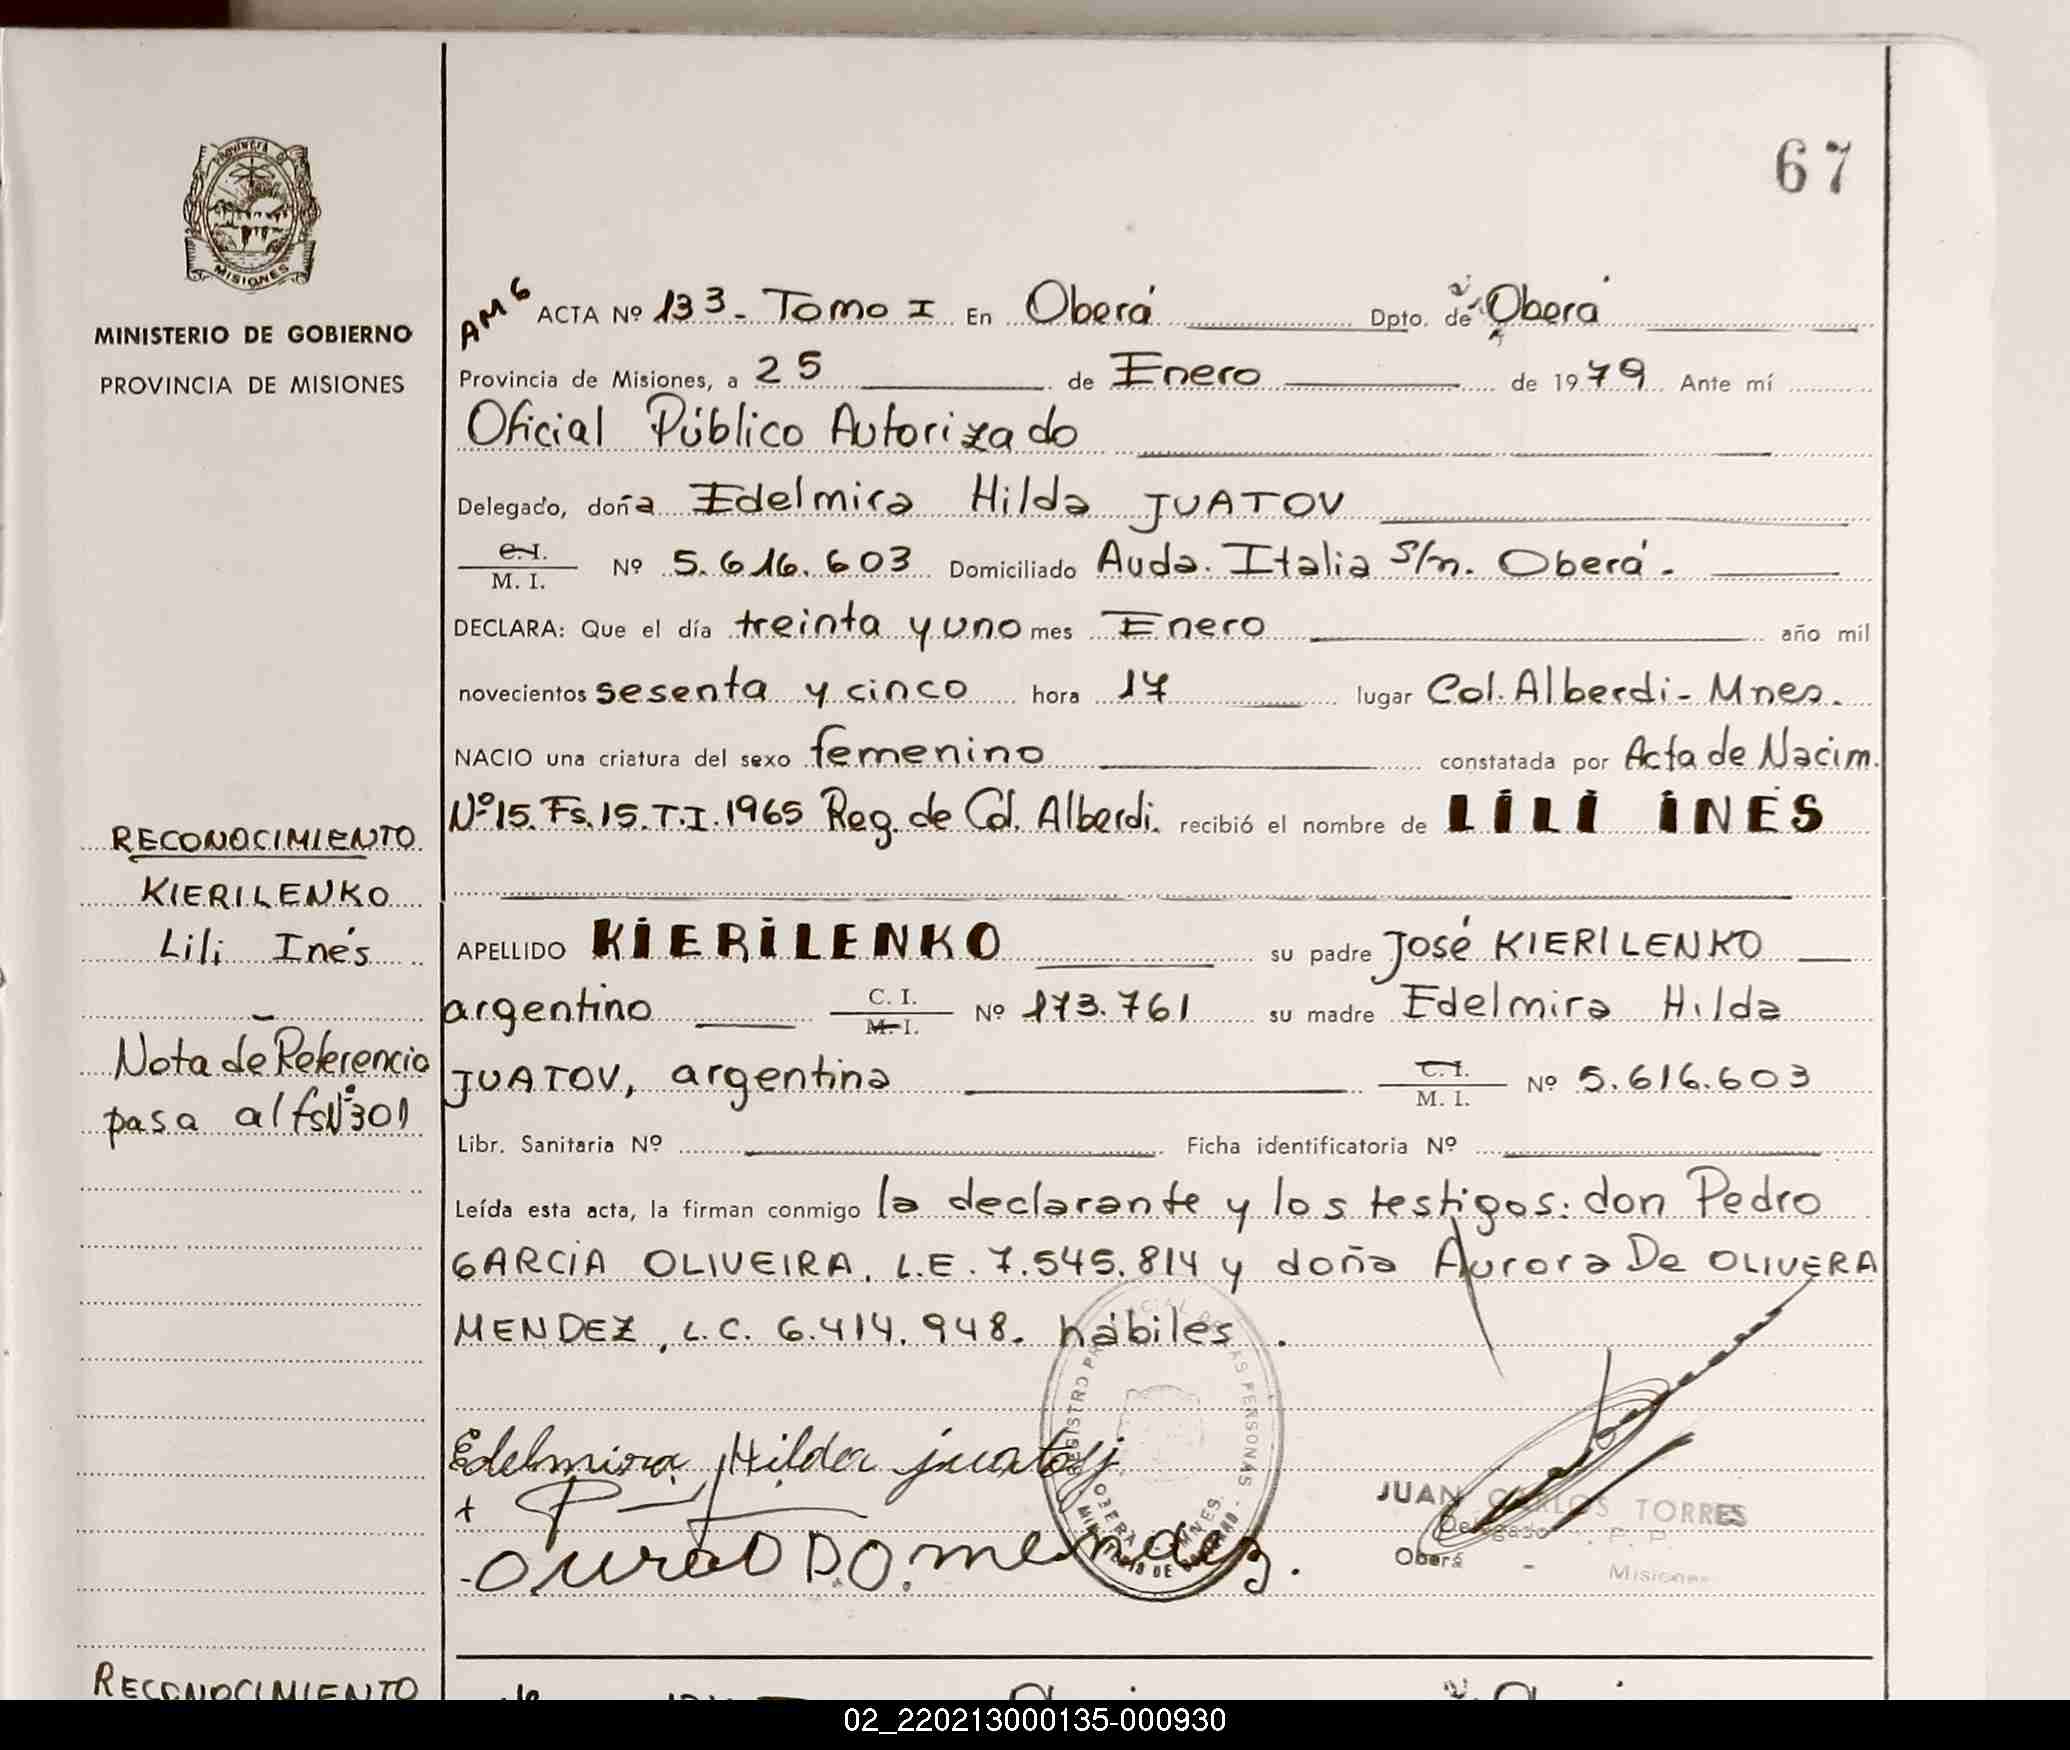 67
PROVINCIA DE
MISIONES
MINISTERIO DE GOBIERNO
PROVINCIA DE MISIONES
AMG ACTA Nº 133 - Tomo I En Oberá Dpto. de Oberá
Provincia de Misiones, a 25 de Enero de 1979 Ante mí
Oficial Público Autorizado
Delegado, doña Edelmira Hilda JUATOV
C. I.
M. I. Nº 5.616.603 Domiciliado Avda. Italia s/n. Oberá.
DECLARA: Que el día treinta y uno mes Enero año mil
novecientos sesenta y cinco hora 17 lugar Col. Alberdi - Mnes.
NACIO una criatura del sexo femenino constatada por Acta de Nacim.
Nº 15. Fs. 15. T. I. 1965 Reg. de Col. Alberdi. recibió el nombre de LILI INES
APELLIDO KIERILENKO su padre José KIERILENKO
argentino C. I.
M. I. Nº 173.761 su madre Edelmira Hilda
JUATOV, argentina C. I.
M. I. Nº 5.616.603
Libr. Sanitaria Nº Ficha identificatoria Nº
Leída esta acta, la firman conmigo la declarante y los testigos: don Pedro
GARCIA OLIVEIRA, L.E. 7.545.814 y doña Aurora De OLIVERA
MENDEZ, L.C. 6.414.948. hábiles.
RECONOCIMIENTO
KIERILENKO
Lili Inés
Nota de Referencia
pasa al fs Nº 301
Edelmira Hilda juatov
D.O. mendez.
REGISTRO PROVINCIAL DE LAS PERSONAS
OBERA MNES.
MINISTERIO DE GOBIERNO
JUAN CARLOS TORRES
Delegado R. P. P.
Oberá - Misiones
RECONOCIMIENTO
02_220213000135-000930